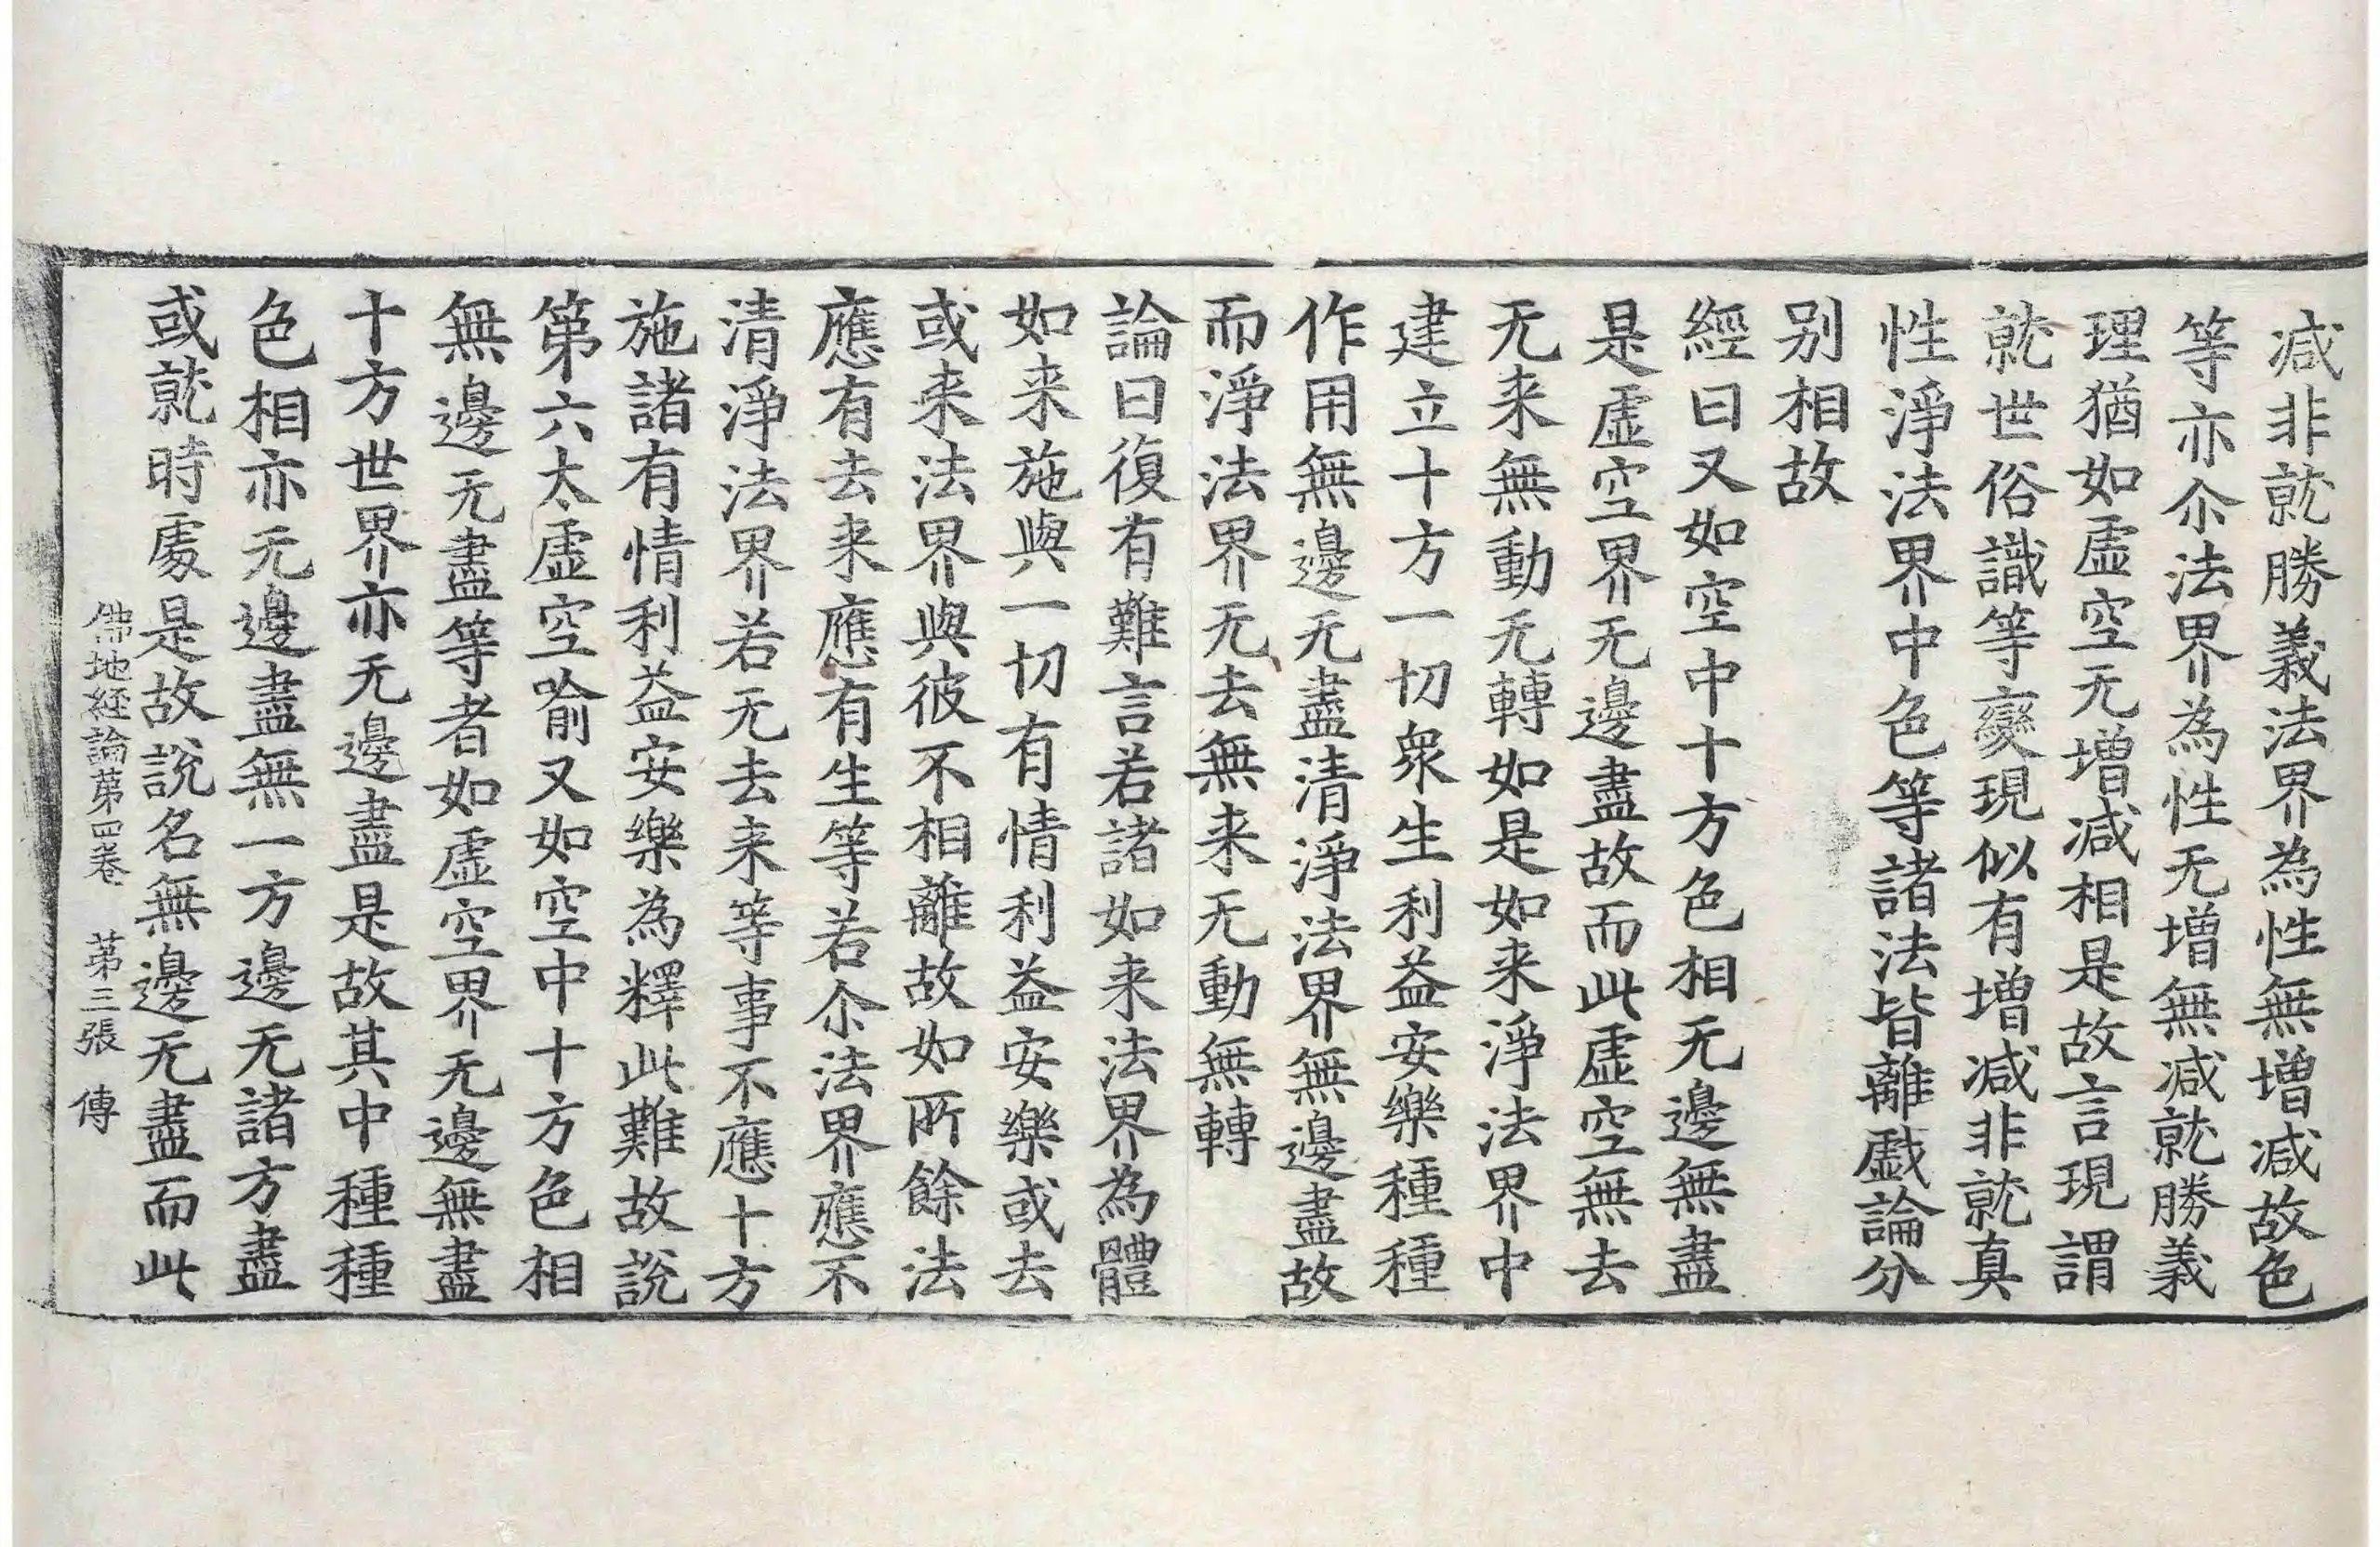 减非就勝義法界為性無增减故色
等亦尒法界為性无增無减就勝義
理猶如虛空无增减相是故言現謂
就世俗識等變現似有增减非就真
性淨法界中色等諸法皆離戱論分
别相故
經曰又如空中十方色相无邊無盡
是虛空界无邊盡故而此虛空無去
无来無動无轉如是如来淨法界中
建立十方一切衆生利益安樂種種
作用無邊无盡清淨法界無邊盡故
而淨法界无去無来无動無轉
論曰復有難言若諸如来法界為體
如来施與一切有情利益安樂或去
或来法界與彼不相離故如所餘法
應有去来應有生等若尒法界應不
清淨法界若无去来等事不應十方
施諸有情利益安樂為釋此難故說
第六太虛空喻又如空中十方色相
無邊无盡等者如虛空界无邊無盡
十方世界亦无邊盡是故其中種種
色相亦无邊盡無一方邊无諸方盡
或就時處是故說名無邊无盡而此
佛地經論第四卷 第三張 傳